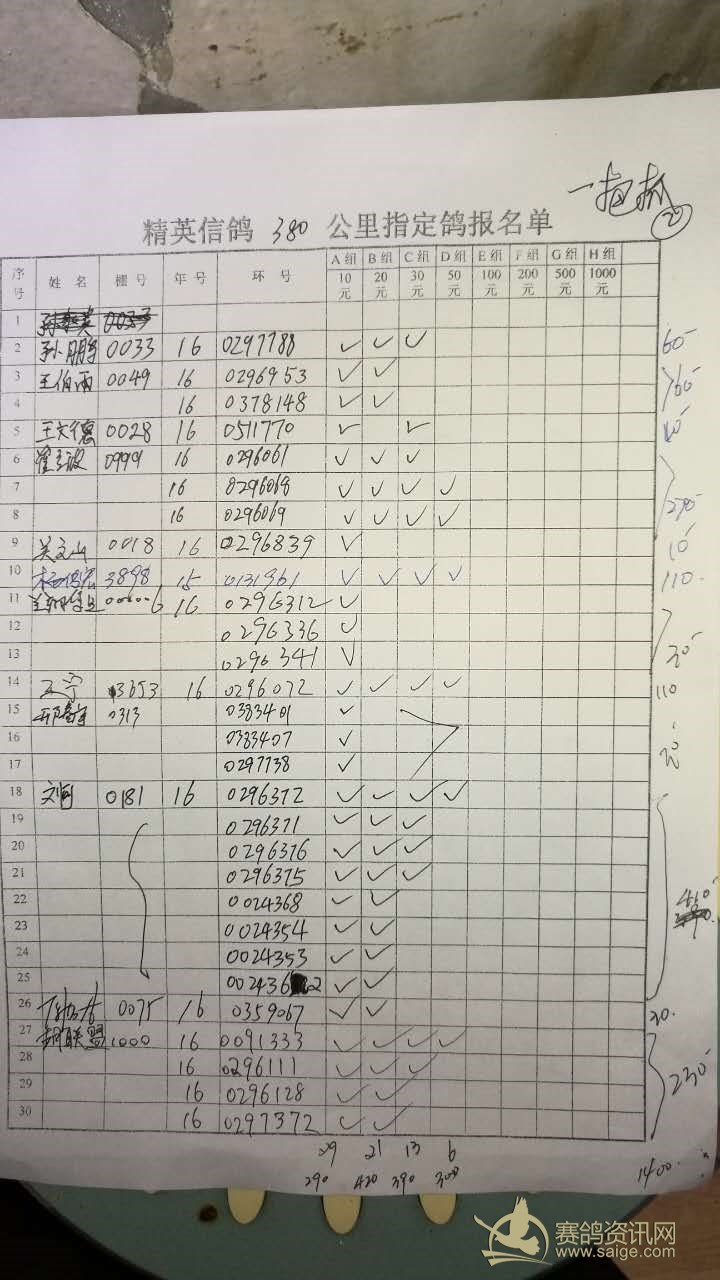 一 ②
精英信鸽 380 公里指定鸽报名单
序号 姓名 棚号 年号 环号 A组 10元 B组 20元 C组 30元 D组 50元 E组 100元 F组 200元 G组 500元 H组 1000元
1 0033
2 孙鹏 0033 16 0297788 ✓ ✓ ✓ 60
3 王伯雨 0049 16 0296953 ✓ ✓ 60
4 16 0378148 ✓ ✓
5 王文德 0028 16 0511770 ✓ ✓
6 0999 16 0296061 ✓ ✓ ✓
7 16 0296068 ✓ ✓ ✓ ✓
8 16 0296069 ✓ ✓ ✓ ✓
9 关文山 0018 16 0296839 ✓ 10
10 3898 15 0131961 ✓ ✓ ✓ ✓ 110
11 16 0296312 ✓
12 0296336 ✓
13 0296341 ✓ 30
14 王宁 3653 16 0296072 ✓ ✓ ✓ ✓ 110
15 0313 0383401 ✓
16 0383407 ✓
17 0297738 ✓
18 刘 0181 16 0296372 ✓ ✓ ✓ ✓
19 0296371 ✓ ✓ ✓
20 0296376 ✓ ✓ ✓
21 0296375 ✓ ✓ ✓
22 0024368 ✓ ✓ 410
23 0024354 ✓ ✓
24 0024353 ✓ ✓
25 0024362 ✓ ✓
26 0075 16 0359067 ✓ ✓ 30
27 联盟 1000 16 0091333 ✓ ✓ ✓ ✓
28 16 0296111 ✓ ✓ ✓
29 16 0296128 ✓ ✓ 230
30 16 0297372 ✓ ✓
29 21 13 6
290 420 390 300 1400
赛鸽资讯网
www.saige.com